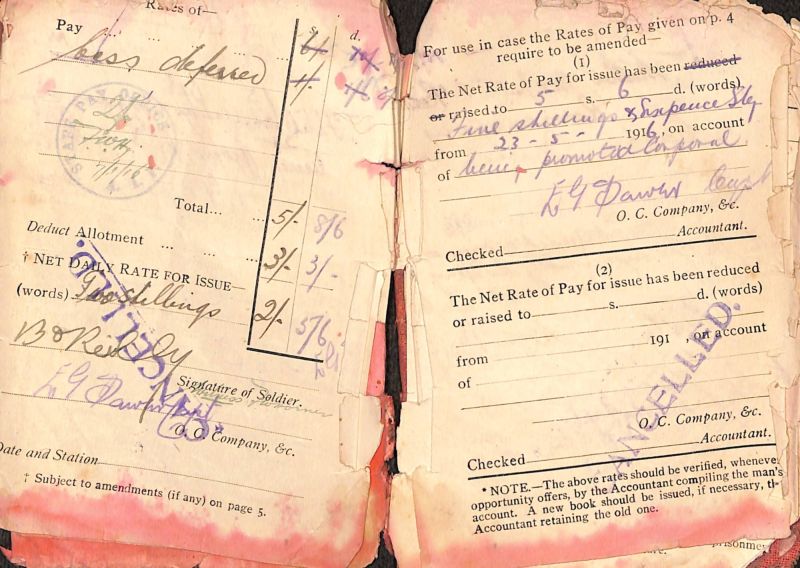 Rates of—
s. d.
Pay 6/-
Less deferred 1/-
STAFF PAY OFFICE
Total... ... 5/- 8/6
Deduct Allotment ... ... 3/- 3/-
† NET DAILY RATE FOR ISSUE—
(words) Two shillings 2/- 5/6
CANCELLED.
Signature of Soldier.
E G Dawes Capt
O. C. Company, &c.
Date and Station
† Subject to amendments (if any) on page 5.
For use in case the Rates of Pay given on p. 4
require to be amended—
(1)
The Net Rate of Pay for issue has been reduced
or raised to 5 s. 6 d. (words)
Five shillings & Sixpence Stg
from 23 - 5 - 1916, on account
of being promoted Corporal
E G Dawes Capt
O. C. Company, &c.
Checked Accountant.
(2)
The Net Rate of Pay for issue has been reduced
or raised to s. d. (words)
from 191 , on account
of
CANCELLED.
O. C. Company, &c.
Checked Accountant.
* NOTE.—The above rates should be verified, wheneve
opportunity offers, by the Accountant compiling the man's
account. A new book should be issued, if necessary, th-
Accountant retaining the old one.